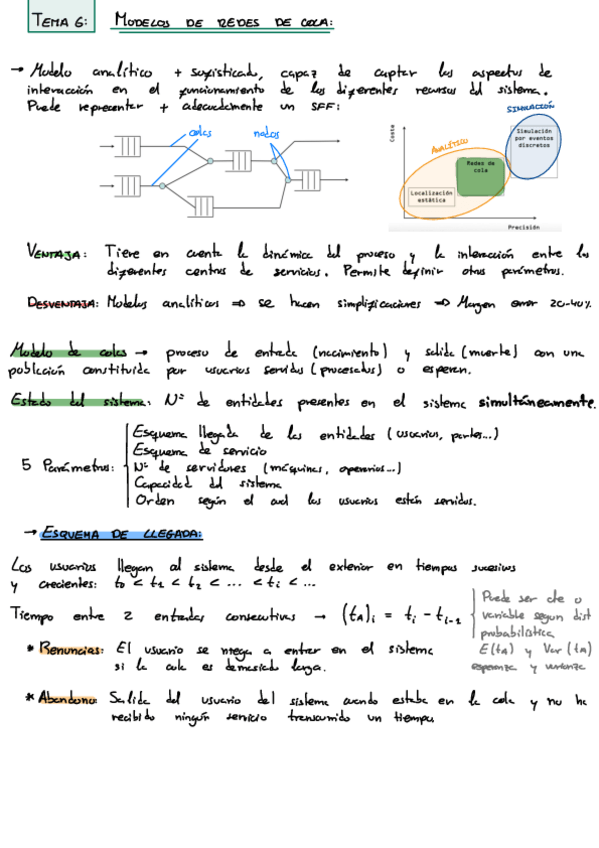 TEMA 6: MODELOS DE REDES DE COLA:
→ Modelo analítico + sofisticado, capaz de captar los aspectos de
interacción en el funcionamiento de los diferentes recursos del sistema.
Puede representar + adecuadamente un SFF:
colas
nodos
SIMULACIÓN
Coste
ANALÍTICO
Simulación
por eventos
discretos
Redes de
cola
Localización
estática
Precisión
VENTAJA: Tiene en cuenta la dinámica del proceso y la interacción entre los
diferentes centros de servicios. Permite definir otros parámetros.
DESVENTAJA: Modelos analíticos ⇒ se hacen simplificaciones ⇒ Margen error 20-40%
Modelo de colas → proceso de entrada (nacimiento) y salida (muerte) con una
población constituida por usuarios servidos (procesados) o esperan.
Estado del sistema: Nº de entidades presentes en el sistema simultáneamente.
5 Parámetros:
Esquema llegada de las entidades (usuarios, partes...)
Esquema de servicio
Nº de servidores (máquinas, operarios...)
Capacidad del sistema
Orden según el cual los usuarios están servidos.
→ ESQUEMA DE LLEGADA:
Los usuarios llegan al sistema desde el exterior en tiempos sucesivos
y crecientes: t0 < t1 < t2 < ... < ti < ...
Tiempo entre 2 entradas consecutivas → (tA)i = ti - ti-1
Puede ser cte o
variable según dist
probabilística
E(tA) y Var(tA)
esperanza y varianza
* Renuncias: El usuario se niega a entrar en el sistema
si la cola es demasiado larga.
* Abandono: Salida del usuario del sistema cuando estaba en la cola y no ha
recibido ningún servicio transcurrido un tiempo.